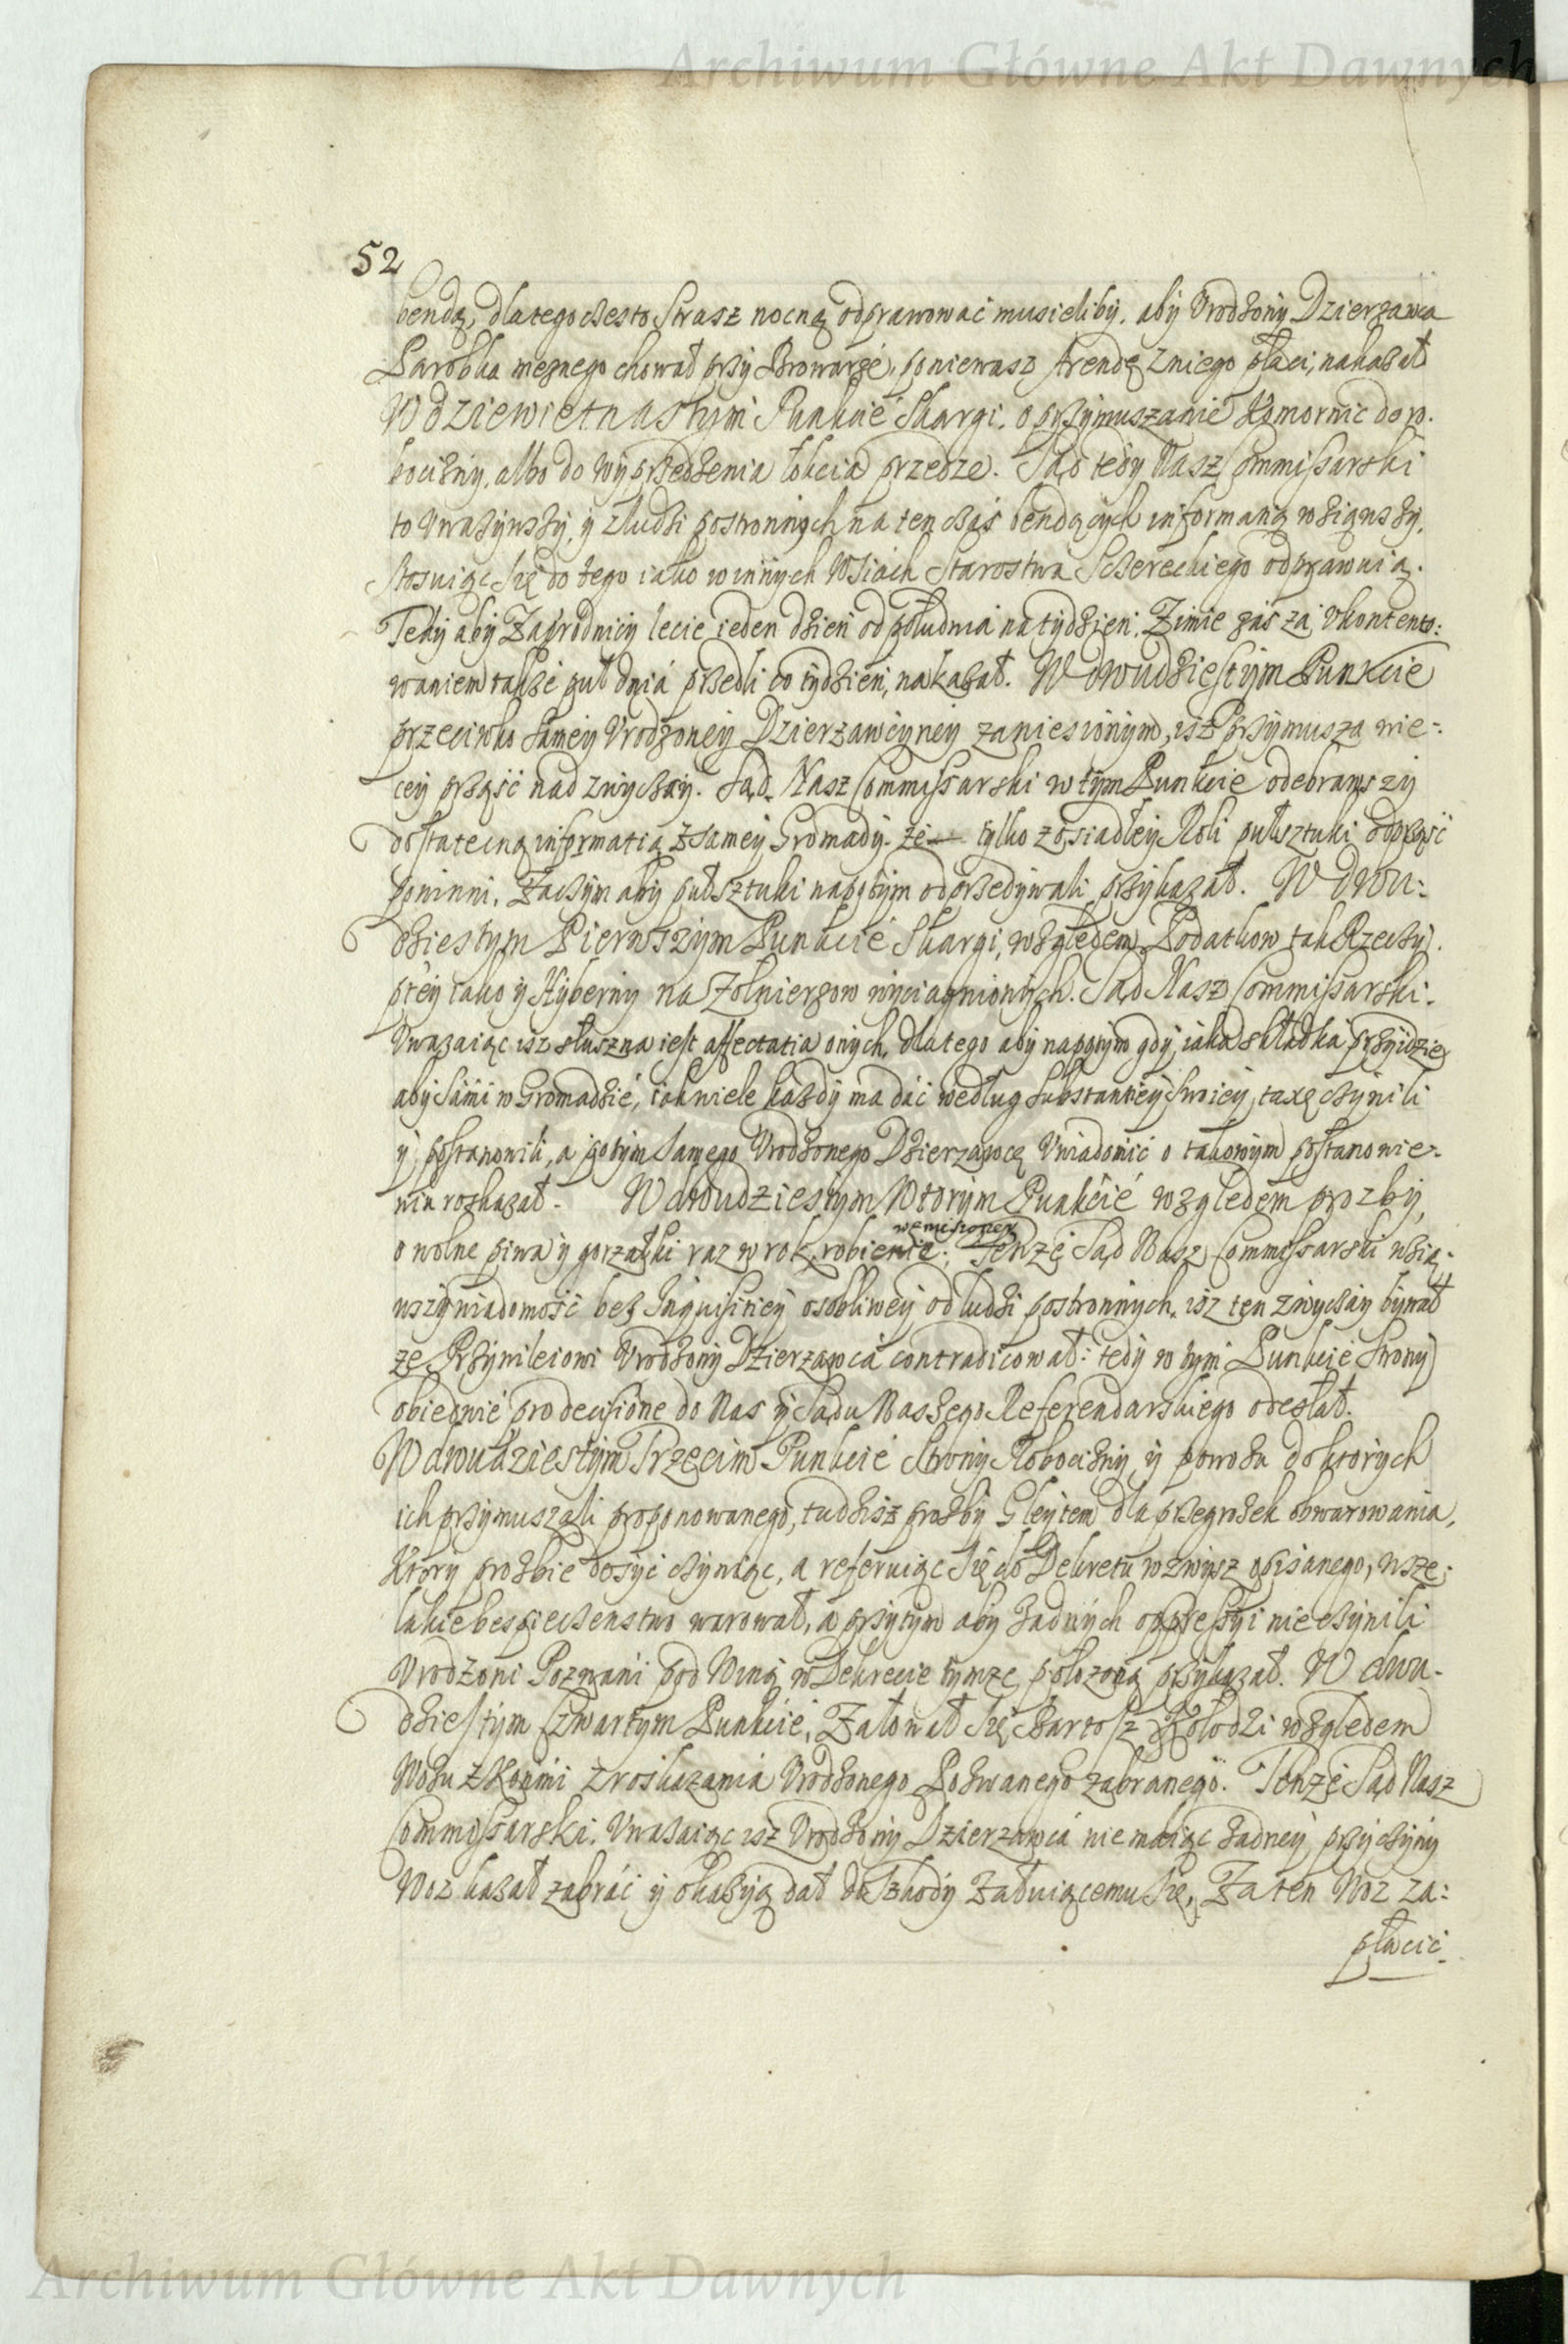 Archiwum Główne Akt Dawnych
52
bendą, dlatego często Strasz nocną odprawować musieliby, aby Urodzony Dzierzawca
Parobka mężnego chował przy Browarze, poniewasz Arendę z niego płaci, nakazał
W dziewietnastym Punkcie Skargi, o przymuszanie Komornic do ro-
bocizny, albo do wyprzedzenia łokcia przedze. Sąd tedy Nasz Commissarski
to uwazywszy, y z ludzi postronnych na ten czas bendących informaną wziąwszy,
stosuiąc się do tego iako w innych Wsiach Starostwa Sczereckiego odprawuią.
Tedy aby Zagrodnicy lecie ieden dzien od południa na tydzien, Zimie zas za ukontento:
waniem takze puł dnia przedli co tydzien, nakazał. W dwudziestym Punkcie
przeciwko samey Urodzoney Dzierzawcyney zaniesionym, isz przymusza wie-
cey prząść nad zwyczay. Sąd Nasz Commissarski w tym Punkcie odebrawszy
dostateczną informatią z samey Gromady, ze tylko z osiadłey Roli pułsztuki odprząść
powinni. Zaczym aby pułsztuki napotym odprzedywali przykazał. W dwu-
dziestym Pierwszym Punkcie Skargi, względem Podatkow tak Rzeczy-
ptey iako y Hyberny na Zołnierzow wyciagnionych. Sąd Nasz Commissarski
Uwazaiąc isz słuszna iest affectatia onych, dlatego aby napotym gdy iaka składka przyidzie
aby sami w Gromadzie, iak wiele kazdy ma dać według substantiey swoiey, taxę czynili
y postanowili, a potym samego Urodzonego Dzierzawcę uwiadomić o takowym postanowie-
niu roskazał. W dwudziestym Wtorym Punkcie względem prozby,
o wolne piwa y gorzałki raz w rok robienie: Tenze Sąd Nasz Commissarski wzią-
wszy wiadomość bez Inquisitiey osobliwey od ludzi postronnych, isz ten zwyczay bywał
ze Przywileiowi Urodzony Dzierzawca contradicował: tedy w tym Punkcie Strony
obiedwie pro decisione do Nas y Sądu Naszego Referendarskiego odesłał.
W dwudziestym Trzecim Punkcie strony Robocizny y powozu do ktorych
ich przymuszali proponowanego, tudzisz prozby Gleytem dla przegrozek obwarowania,
Ktory prozbie dosyć czyniąc, a referuiąc się do Dekretu wzwysz opisanego, wsze-
lakie bespieczenstwo warował, a przytym aby zadnych oppressyi nie czynili
Urodzoni Pozwani pod Winą w Dekrecie tymze połozoną przykazał. W dwu-
dziestym Czwartym Punkcie, Załował się Bartosz Kołodzi względem
Wozu z Konmi z roskazania Urodzonego Pozwanego zabranego. Tenze Sąd Nasz
Commissarski. Uwazaiąc isz Urodzony Dzierzawca nie maiąc zadney przyczyny
Woz kazał zabrać y okazyą dał do Szkody Załuiącemu się, Za ten Woz za:
płacić
Archiwum Główne Akt Dawnych